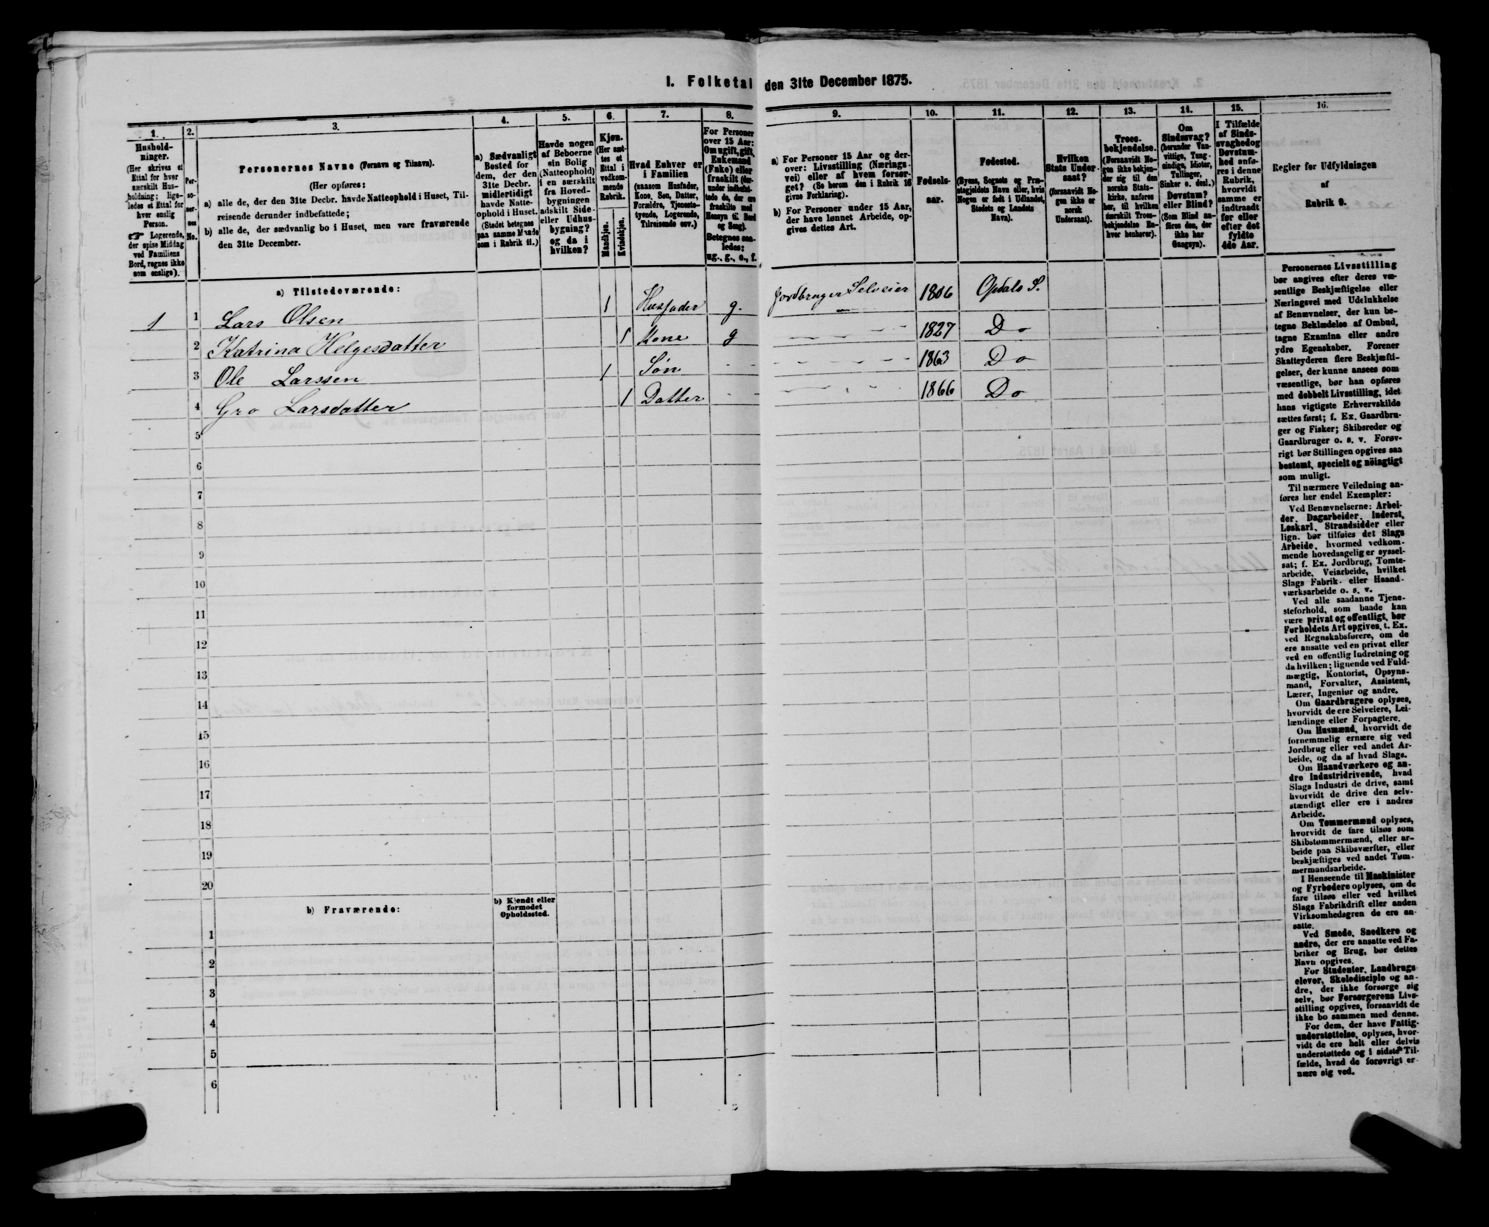 I. Folketal den 31te December 1875.
1.
2.
3.
4.
5.
6.
7.
8.
9.
10.
11.
12.
13.
14.
15.
16.
Hushold-
ninger.
(Her skrives et
Ettal for hver
særskilt Hus-
holdning; lige-
ledes et Ettal for
hver enslig
Person.
☞ Logerende,
der spise Middag
ved Familiens
Bord, regnes ikke
som enslige).
Per-
so-
ner-
nes
No.
Personernes Navne (Fornavn og Tilnavn).
(Her opføres:
a) alle de, der den 31te Decbr. havde Natteophold i Huset, Til-
reisende derunder indbefattede;
b) alle de, der sædvanlig bo i Huset, men vare fraværende
den 31te December.
a) Sædvanligt
Bosted for
dem, der den
31te Decbr.
midlertidigt
havde Natte-
ophold i Huset.
(Stedet betegnes
paa samme Maade
som i Rubrik 11.)
Havde nogen
af Beboerne
sin Bolig
(Natteophold)
i en særskilt
fra Hoved-
bygningen
adskilt Side-
eller Udhus-
bygning?
og da i
hvilken?
Kjøn.
(Her sæt-
tes et
Ettal i
vedkom-
mende
Rubrik.
Mandkjøn.
Kvindekjøn.
Hvad Enhver er
i Familien
(saasom Husfader,
Kone, Søn, Datter,
Forældre, Tjeneste-
tyende, Logerende,
Tilreisende osv.)
For Personer
over 15 Aar:
Om ugift, gift,
Enkemand
(Enke) eller
fraskilt (der-
under indbefat-
tede de, der ere
fraskilte med
Hensyn til Bord
og Seng).
Betegnes saa-
ledes:
ug., g., e., f.
a) For Personer 15 Aar og der-
over: Livsstilling (Nærings-
vei) eller af hvem forsør-
get? (Se herom den i Rubrik 16
givne Forklaring).
b) For Personer under 15 Aar,
der have lønnet Arbeide, op-
gives dettes Art.
Fødsels-
aar.
Fødested.
(Byens, Sognets og Præ-
stegjeldets Navn eller, hvis
Nogen er født i Udlandet,
Stedets og Landets
Navn).
Hvilken
Stats Under-
saat?
(forsaavidt No-
gen ikke er
norsk
Undersaat).
Troes-
bekjendelse.
(Forsaavidt No-
gen ikke bekjen-
der sig til den
norske Stats-
kirke, anføres
her, til hvilken
særskilt Troes-
bekjendelse En-
hver henhører).
Om
Sindssvag?
(herunder Van-
vittige, Tung-
sindige, Idioter,
Tullinger,
Sinker o. desl.)
Døvstum?
eller Blind?
(Som Blind an-
føres den, der
ikke har
Gangsyn).
I Tilfælde
af Sinds-
svaghed og
Døvstum-
hed anfø-
res i denne
Rubrik,
hvorvidt
samme er
indtraadt
før eller
efter det
fyldte
4de Aar.
Regler for Udfyldningen
af
Rubrik 9.
a) Tilstedeværende:
1 1 Lars Olsen 1 Husfader g. Jordbruger Selveier 1806 Opdals S.
2 Katrina Helgesdatter 1 Kone g 1827 Do
3 Ole Larssen 1 Søn 1863 Do
4 Gro Larsdatter 1 Datter 1866 Do
5
6
7
8
9
10
11
12
13
14
15
16
17
18
19
20
b) Fraværende:
b) Kjendt eller
formodet
Opholdssted.
1
2
3
4
5
6
Personernes Livsstilling
bør angives efter deres væ-
sentlige Beskjæftigelse eller
Næringsvei med Udelukkelse
af Benævnelser, der kun be-
tegne Beklædelse af Ombud,
tagne Examina eller andre
ydre Egenskaber. Forener
Skatteyderen flere Beskjæfti-
gelser, der kunne ansees som
væsentlige, bør han opføres
med dobbelt Livsstilling, idet
hans vigtigste Erhvervskilde
sættes først; f. Ex. Gaardbru-
ger og Fisker; Skibsreder og
Gaardbruger o. s. v. Forøv-
rigt bør Stillingen opgives saa
bestemt, specielt og nöiagtigt
som muligt.
Til nærmere Veiledning an-
føres her endel Exempler:
Ved Benævnelserne: Arbei-
der, Dagarbeider, Inderst,
Løskarl, Strandsidder eller
lign. bør tilføies det Slags
Arbeide, hvormed vedkom-
mende hovedsagelig er syssel-
sat; f. Ex. Jordbrug, Tomte-
arbeide, Veiarbeide, hvilket
Slags Fabrik- eller Haand-
værksarbeide o. s. v.
Ved alle saadanne Tjene-
steforhold, som baade kan
være privat og offentligt, bør
Forholdets Art opgives, f. Ex.
ved Regnskabsførere, om de
ere ansatte ved en privat eller
ved en offentlig Indretning og
da hvilken; lignende ved Fuld-
mægtig, Kontorist, Opsyns-
mand, Forvalter, Assistent,
Lærer, Ingeniør og andre.
Om Gaardbrugere oplyses,
hvorvidt de ere Selveiere, Lei-
lændinge eller Forpagtere.
Om Husmænd, hvorvidt de
fornemmelig ernære sig ved
Jordbrug eller ved andet Ar-
beide, og da af hvad Slags.
Om Haandværkere og an-
dre Industridrivende, hvad
Slags Industri de drive, samt
hvorvidt de drive den selv-
stændigt eller ere i andres
Arbeide.
Om Tømmermænd oplyses,
hvorvidt de fare tilsøs som
Skibstømmermænd, eller ar-
beide paa Skibsværfter, eller
beskjæftiges ved andet Tøm-
mermandsarbeide.
I Henseende til Maskinister
og Fyrbødere oplyses, om de
fare tilsøs eller ved hvilket
Slags Fabrikdrift eller anden
Virksomhedsgren de ere an-
satte.
Ved Smede, Snedkere og
andre, der ere ansatte ved Fa-
briker og Brug, bør dettes
Navn opgives.
For Studenter, Landbrugs-
elever, Skoledisciple og an-
dre, der ikke forsørge sig
selv, bør Forsørgerens Livs-
stilling opgives, forsaavidt de
ikke bo sammen med denne.
For dem, der have Fattig-
understøttelse, oplyses, hvor-
vidt de ere helt eller delvis
understøttede og i sidste Til-
fælde, hvad de forøvrigt er-
nære sig ved.